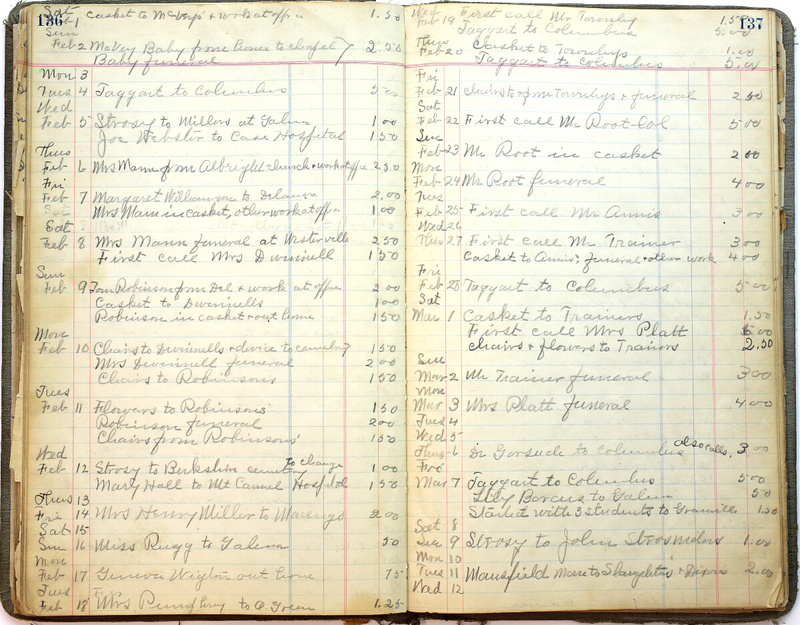 136
Sat
Feb 1 Casket to McVeys + work at office 1.50
Sun
Feb 2 McVey Baby from home to chapel 2.50
Baby funeral
Mon 3
Tues 4 Taggart to Columbus 500
Wed
Feb 5 Strosy to Millers at Galena 1 00
Joe Webster to Case Hospital 1 50
Thurs
Feb 6 Mrs Mann from Albright church + work at office 2 50
Fri
Feb 7 Margaret Williamson to Delaware 2.00
Mrs Mann in casket, other work at office 1 00
Sat
Feb 8 Mrs Mann funeral at Westerville 2 50
First call Mrs Dwinnell 1 50
Sun
Feb 9 Tom Robinson from Del + work at office 2 00
Casket to Dwinnells 1 00
Robinson in casket + out home 1 50
Mon
Feb 10 Chairs to Dwinnells + device to cemetery 1 50
Mrs Dwinnell funeral 2 00
Chairs to Robinsons 1 50
Tues
Feb 11 Flowers to Robinsons' 1 50
Robinson funeral 2 00
Chairs from Robinsons' 1 50
Wed
Feb 12 Strosy to Berkshire cemetery to change 1 00
Mary Hall to Mt Carmel Hospital 1 50
Thurs 13
Fri 14 Mrs Henry Miller to Marengo 2 00
Sat 15
Sun 16 Miss Rugg to Galena 50
Mon
Feb 17 Geneva Wigton out home 75
Tues
Feb 18 Mrs Pumphrey to O Green 1.25
137
Wed
Feb 19 First call Mr Townley 1.50
Taggart to Columbus 5.00
Thurs
Feb 20 Casket to Townleys 1.00
Taggart to Columbus 5.00
Fri
Feb 21 Chairs to + from Townleys + funeral 2 50
Sat
Feb 22 First call Mr Root Col 5 00
Sun
Feb 23 Mr Root in casket 2 00
Mon
Feb 24 Mr Root funeral 4 00
Tues
Feb 25 First call Mr Annis 3 00
Wed 26
Thurs 27 First call Mr Trainer 3 00
Casket to Annis, funeral + other work 4 00
Fri
Feb 28 Taggart to Columbus 5 00
Sat
Mar 1 Casket to Trainers 1.50
First call Mrs Platt 5.00
Chairs + flowers to Trainers 2.50
Sun
Mar 2 Mr Trainer funeral 3 00
Mon
Mar 3 Mrs Platt funeral 4.00
Tues 4
Wed 5
Thurs 6 Dr Gorsuch to Columbus also calls, 3 00
Fri
Mar 7 Taggart to Columbus 5 00
Lily Barcus to Galena 50
Started with 3 students to Granville 1.50
Sat 8
Sun 9 Strosy to John Strosniders 1.00
Mon 10
Tues 11 Mansfield Man to Slaughters + Dixon 2.00
Wed 12